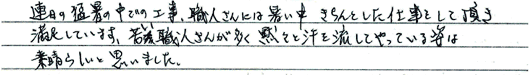 連日の猛暑の中での工事、職人さんには暑い中 きちんとした仕事をして頂き
満足しています。若い職人さんが多く 黙々と汗を流してやっている姿は
素晴らしいと思いました。